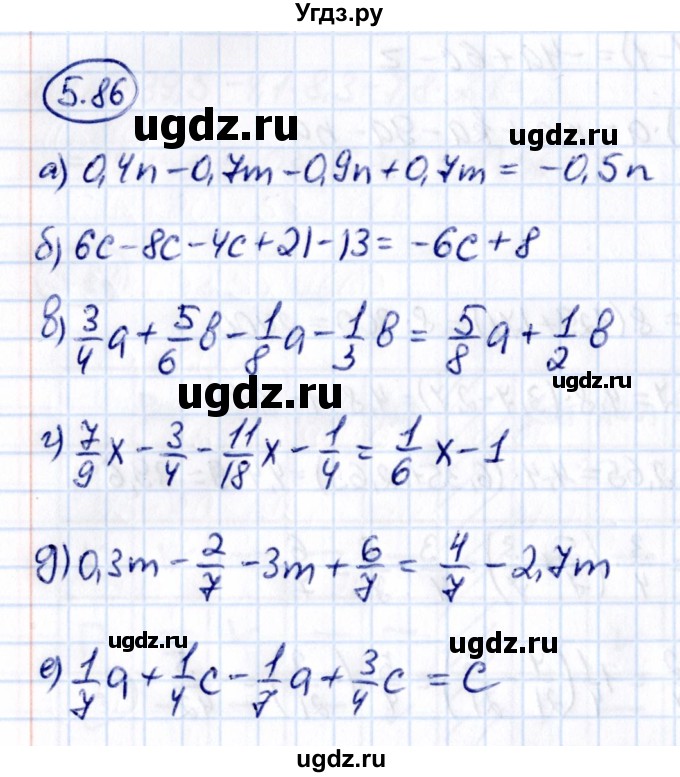 Угдз.ру
5.86
ugdz.ru
ugdz.ru
а) 0,4n - 0,7m - 0,9n + 0,7m = -0,5n
б) 6c - 8c - 4c + 21 - 13 = -6c + 8
в) 3/4 a + 5/6 b - 1/8 a - 1/3 b = 5/8 a + 1/2 b
ugdz.ru
ugdz.ru
г) 7/9 x - 3/4 - 11/18 x - 1/4 = 1/6 x - 1
д) 0,3m - 2/7 - 3m + 6/7 = 4/7 - 2,7m
ugdz.ru
ugdz.ru
е) 1/7 a + 1/4 c - 1/7 a + 3/4 c = c
ugdz.ru